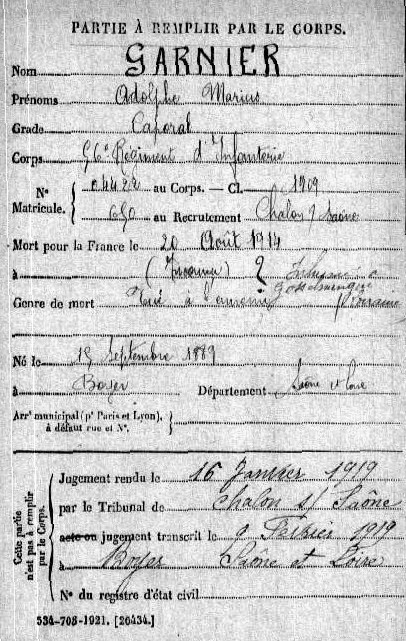 PARTIE À REMPLIR PAR LE CORPS.
Nom GARNIER
Prénoms Adolphe Marius
Grade Caporal
Corps 56e Régiment d'Infanterie
N° Matricule. { 04422 au Corps. — Cl. 1909
050 au Recrutement Chalon s/ Saône
Mort pour la France le 20 Août 1914
à (Inconnu) ? Inhumé à
Gosselmingen
Genre de mort Tué à l'ennemi Lorraine
Né le 15 Septembre 1889
à Boyer Département Saône et Loire
Arrt municipal (pr Paris et Lyon), }
à défaut rue et N°.
Cette partie n'est pas à remplir par le Corps.
Jugement rendu le 16 Janvier 1919
par le Tribunal de Chalon s/ Saône
acte ou jugement transcrit le 9 Février 1919
à Boyer Saône et Loire
N° du registre d'état civil
534-708-1921. [26434.]